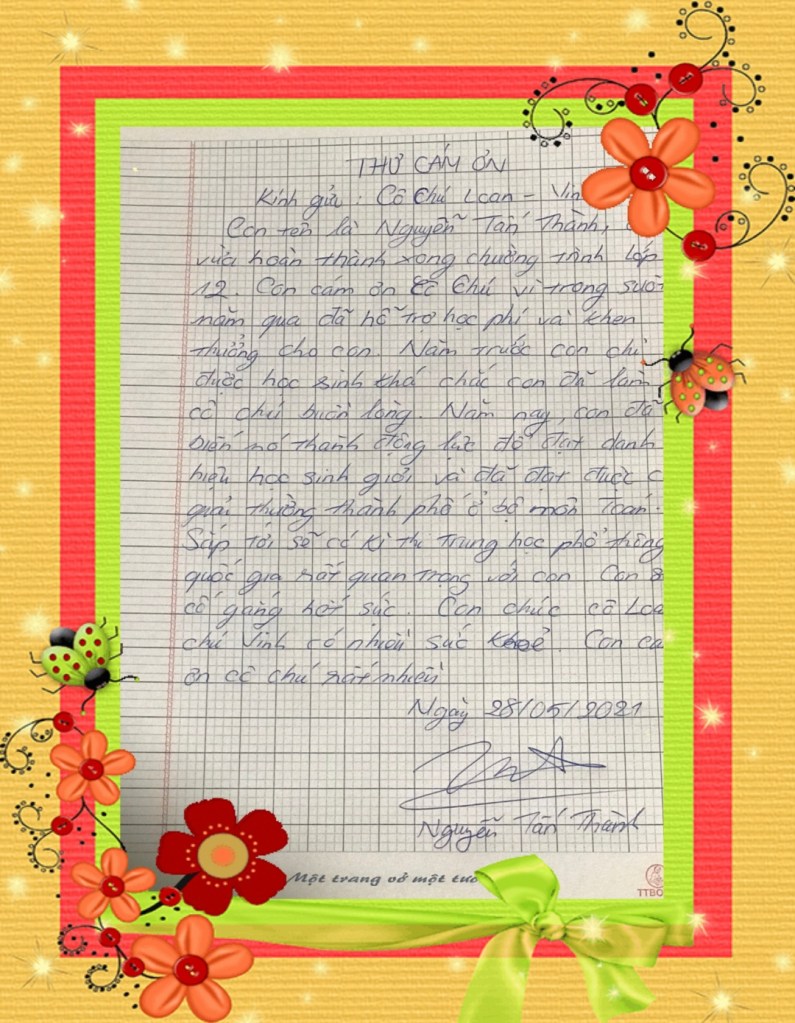 THƯ CÁM ƠN
Kính gửi : Cô Chú Loan - Vin
Con tên là Nguyễn Tấn Thành,
vừa hoàn thành xong chương trình lớp
12. Con cám ơn Cô Chú vì trong suốt
năm qua đã hỗ trợ học phí và khen
thưởng cho con. Năm trước con chỉ
được học sinh khá chắc con đã làm
cô chú buồn lòng. Năm nay, con đã
biến nó thành động lực để đạt danh
hiệu học sinh giỏi và đã đạt được c
giải thưởng thành phố ở bộ môn Toán.
Sắp tới sẽ có kì thi trung học phổ thông
quốc gia rất quan trọng với con. Con s
cố gắng hết sức. Con chúc cô Loa
chú Vinh có nhiều sức khoẻ. Con cá
ơn cô chú rất nhiều
Ngày 28/05/2021
Nguyễn Tấn Thành
Một trang vở một tư
TTBO